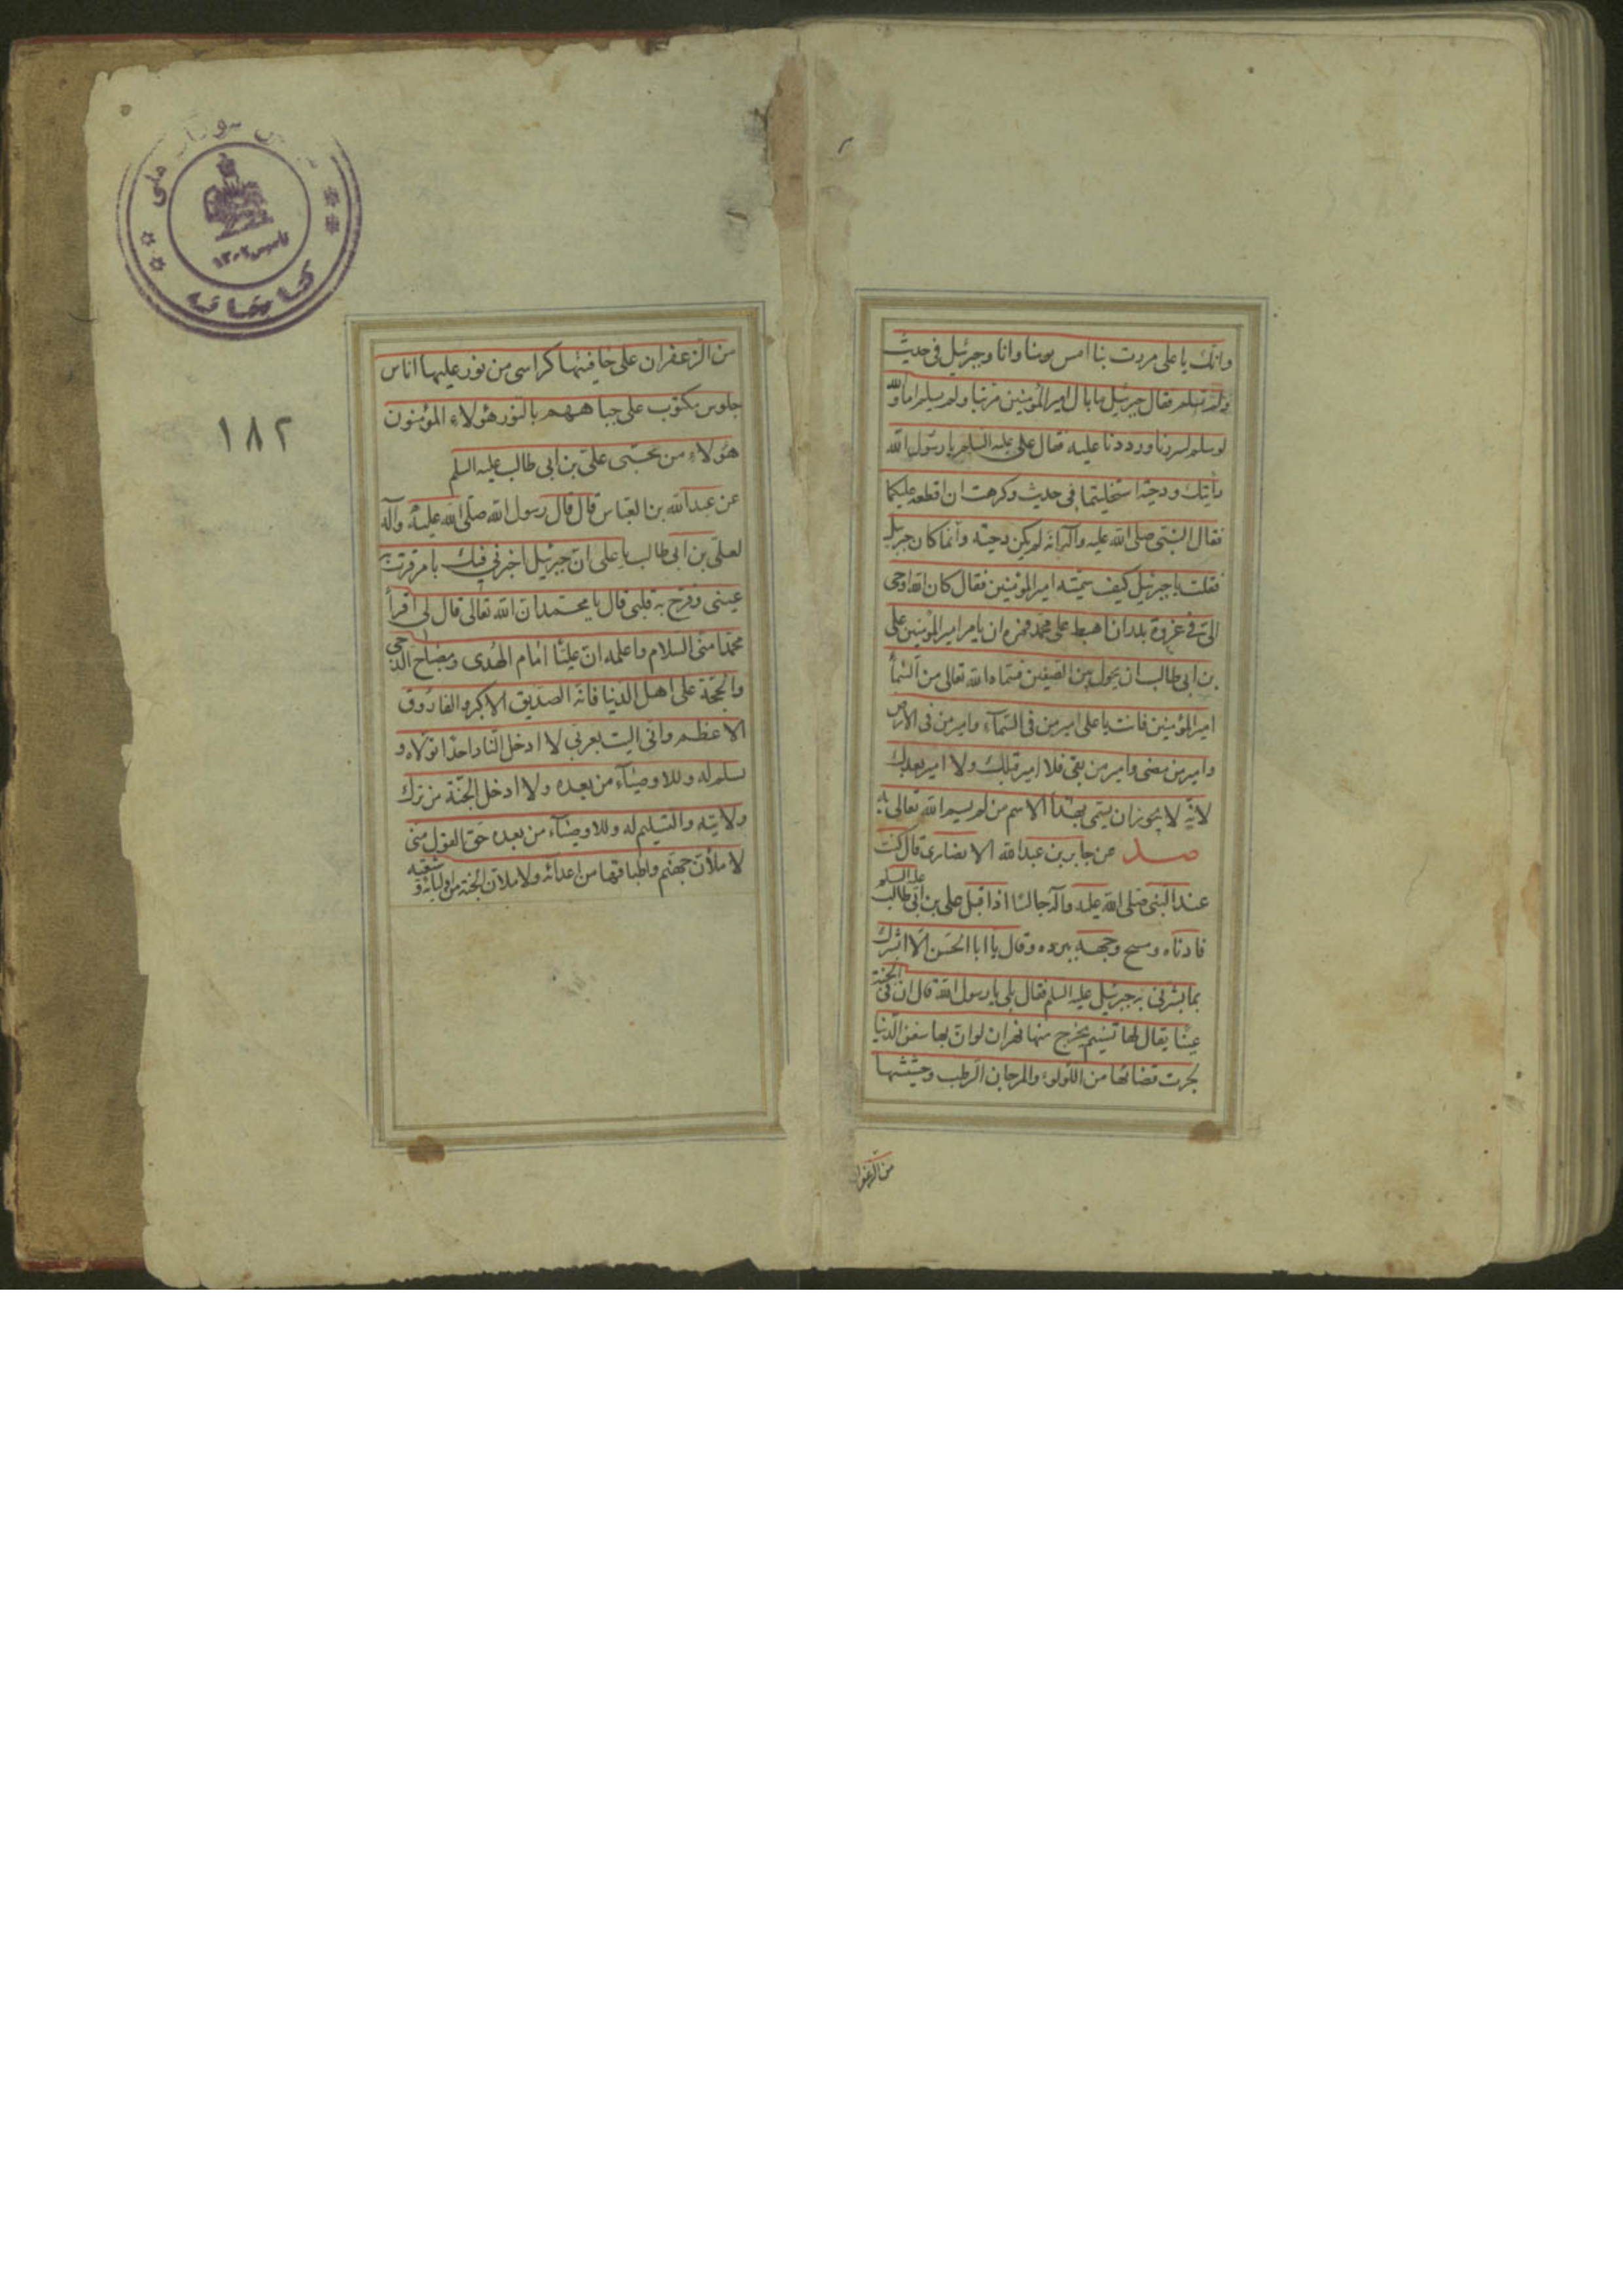 وانك يا على مررت بنا امس يومنا وانا وجبرئيل فى حديث
ولم تسلم فقال جبرئيل ما بال امير المؤمنين مر بنا ولم يسلم اما والله
لو سلم لسررنا ورددنا عليه فقال على عليه السلم يا رسول الله
رأيتك ودحية استخليتما فى حديث وكرهت ان اقطعه عليكما
فقال النبى صلى الله عليه وآله انه لم يكن دحية وانما كان جبرئيل
فقلت يا جبرئيل كيف سميته امير المؤمنين فقال كان الله اوحى
الى فى غزوة بدر ان اهبط على محمد فمره ان يامر امير المؤمنين على
بن ابى طالب ان يجول بين الصفين فسماه الله تعالى من السماء
امير المؤمنين فانت يا على امير من فى السماء وامير من فى الارض
وامير من مضى وامير من بقى فلا امير قبلك ولا امير بعدك
لانه لا يجوز ان يسمى بهذا الاسم من لم يسمه الله تعالى به
عن جابر بن عبدالله الانصارى قال كنت
عند النبى صلى الله عليه وآله جالسا اذ اقبل على بن ابى طالب عليه السلم
فادناه ومسح وجهه ببرده وقال يا ابا الحسن الا ابشرك
بما بشرنى به جبرئيل عليه السلم فقال بلى يا رسول الله قال ان فى الجنة
عينا يقال لها تسنيم يخرج منها نهران لو ان بها سفن الدنيا
لجرت قضائها من اللولوء والمرجان الرطب وحشيشها
من الزعفران
من الزعفران على حافيتها كراسى من نور عليها اناس
جلوس مكتوب على جباههم بالنور هؤلاء المؤمنون
هؤلاء من محبى على بن ابى طالب عليه السلم
عن عبدالله بن العباس قال قال رسول الله صلى الله عليه وآله
لعلى بن ابى طالب يا على ان جبرئيل اخبرنى فيك بامر قرت به
عينى وفرح به قلبى قال يا محمد ان الله تعالى قال لى اقرأ
محمدا منى السلام واعلمه ان عليا امام الهدى ومصباح الدجى
والحجة على اهل الدنيا فانه الصديق الاكبر والفاروق
الاعظم وانى اليت بعزتى لا ادخل النار احدا تولاه و
سلم له وللاوصياء من بعده ولا ادخل الجنة من ترك
ولايته والتسليم له وللاوصياء من بعده حق القول منى
لاملأن جهنم واطباقها من اعدائه ولاملأن الجنة من اوليائه و شيعته
١٨٢
ملى
تاسيس ١٣٠٢
كتابخانه